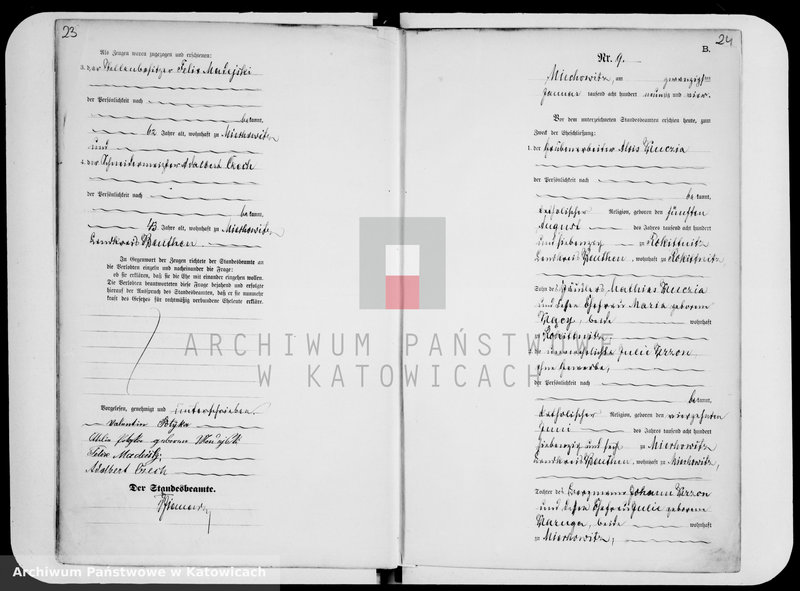 23
Als Zeugen waren zugezogen und erschienen:
3. der Stellenbesitzer Felix
der Persönlichkeit nach
bekannt,
62 Jahre alt, wohnhaft zu Miechowitz
und
4. der Schneidermeister Adalbert Czech
der Persönlichkeit nach
bekannt,
43 Jahre alt, wohnhaft zu Miechowitz
Landkreis Beuthen.
In Gegenwart der Zeugen richtete der Standesbeamte an
die Verlobten einzeln und nacheinander die Frage:
ob sie erklären, daß sie die Ehe mit einander eingehen wollen.
Die Verlobten beantworteten diese Frage bejahend und erfolgte
hierauf der Ausspruch des Standesbeamten, daß er sie nunmehr
kraft des Gesetzes für rechtmäßig verbundene Eheleute erkläre.
Vorgelesen, genehmigt und unterschrieben.
Valentin
geboren
Felix
Adalbert Czech
Der Standesbeamte.
24
B.
Nr. 9.
Miechowitz, am zwanzigsten
Januar tausend acht hundert neunzig und vier.
Vor dem unterzeichneten Standesbeamten erschien heute, zum
Zweck der Eheschließung:
1. der Grubenarbeiter Alois
der Persönlichkeit nach
bekannt,
katholischer Religion, geboren den fünften
August des Jahres tausend acht hundert
und siebenzig zu Rokittnitz
Landkreis Beuthen, wohnhaft zu Rokittnitz,
Sohn des Häuslers Mathias
und dessen Ehefrau Maria geborene
beide wohnhaft
zu Rokittnitz
2. die unverehelichte Julie Wrzon
ohne Gewerbe,
der Persönlichkeit nach
bekannt,
katholischer Religion, geboren den vierzehnten
Juni des Jahres tausend acht hundert
siebenzig und sechs zu Miechowitz
Landkreis Beuthen, wohnhaft zu Miechowitz,
Tochter des Bergmanns Johann Wrzon
und dessen Ehefrau Julie geborene
beide wohnhaft
zu Miechowitz,
ARCHIWUM PAŃSTWOWE
W KATOWICACH
Archiwum Państwowe w Katowicach